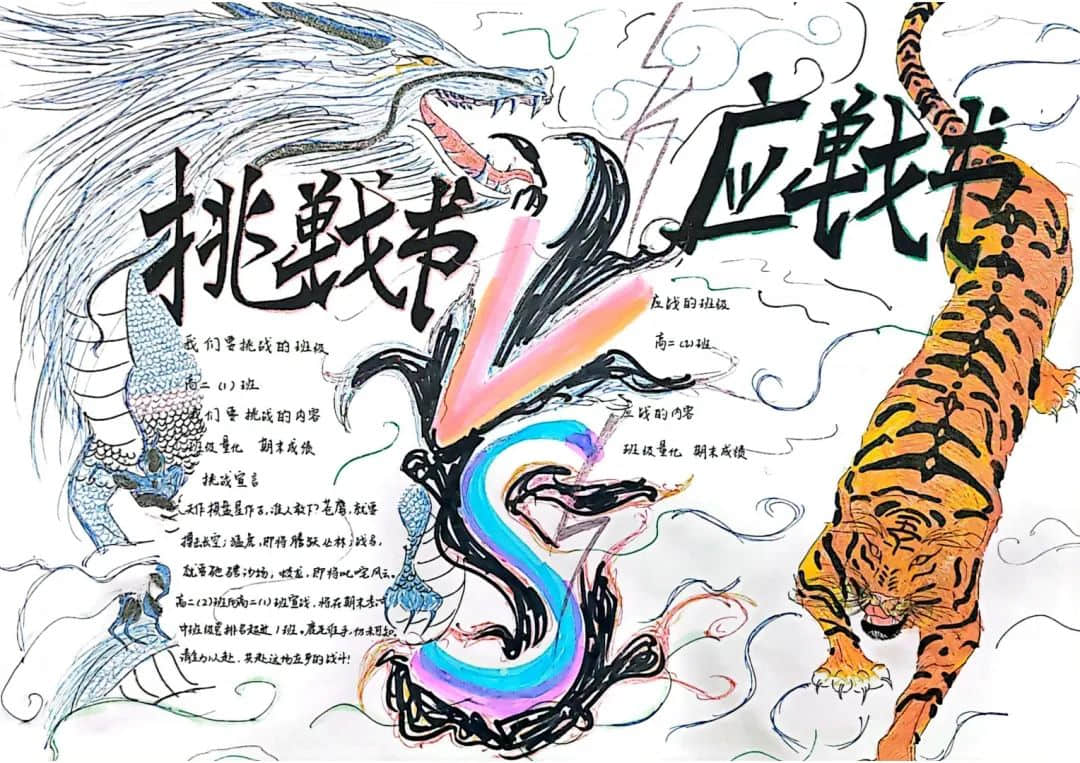 挑戰书
我们要挑战的班级
高二（1）班
我们要挑战的内容
班级量化 期末成绩
挑战宣言
天作棋盘星作子,谁人敢下?苍鹰,就要
搏击长空;猛虎,即将腾跃丛林;战马,
就要驰骋沙场,蛟龙,即将叱咤风云,
高二(2)班向高二(1)班宣战,将在期末考试
中班级总排名超过1班。鹿死谁手,仍未可知,
请全力以赴,共赴这场 的战斗!
VS
应戰书
应战的班级
高二（2）班
应战的内容
班级量化 期末成绩